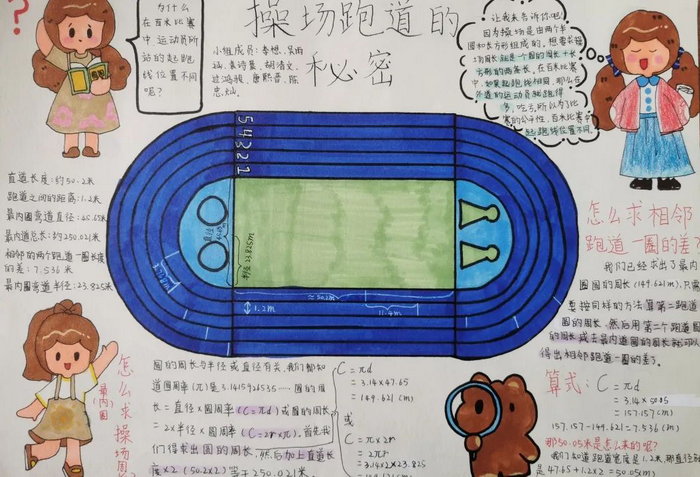 操场跑道的
秘密
?
为什么
在百米比赛
中运动员所
站的起跑
线位置不同
呢?
小组成员:李想、
过鸿骏、唐熙晋、陈
让我来告诉你吧!
因为操场是由两个半
圆和长方形组成的,想要求操
场周长就是一个圆的周长+长
方形的两条长,在百米比赛
中,如果起跑线相同,那么在
外道的运动员就跑得
多,吃亏,所以为了比
赛的公平性,百米比赛中
起跑线位置不同。
直道长度:约50.2米
跑道之间的距离:1.2米
最内圈弯道直径:
最内道总长:约250.021米
相邻的两个跑道一圈长度
的差:7.536米
最内圈弯道半径:23.825米
5 4 3 2 1
直径
半径23.825m
1.2m
11.4m
怎么求相邻
跑道一圈的差?
我们已经求出了最内
圈圆的周长(149.621m),只需
要按同样的方法算第二跑道
圆的周长,然后用第二个跑道圆
的周长减去最内道圆的周长就可以
得出相邻跑道一圈的差了。
算式:C=πd
=3.14×50.05
=157.157(m)
157.157-149.621=7.536(m)
那50.05米是怎么来的呢?
我们知道跑道宽度是1.2米,那直径
是47.65+1.2×2=50.05(m)
怎么求操场周长?
最内圈
圆的周长与半径或直径有关,我们都知
道圆周率(π)是3.1415926535……圆的周
长=直径×圆周率(C=πd)或圆的周长
=2×半径×圆周率(C=2πr),首先我
们得求出圆的周长,然后加上直道长
度×2(50.2×2)等于250.021米。
C=πd
=3.14×47.65
=149.621(m)
或
C=π×2r
=2πr
=3.14×2×23.825
=149.621(m)